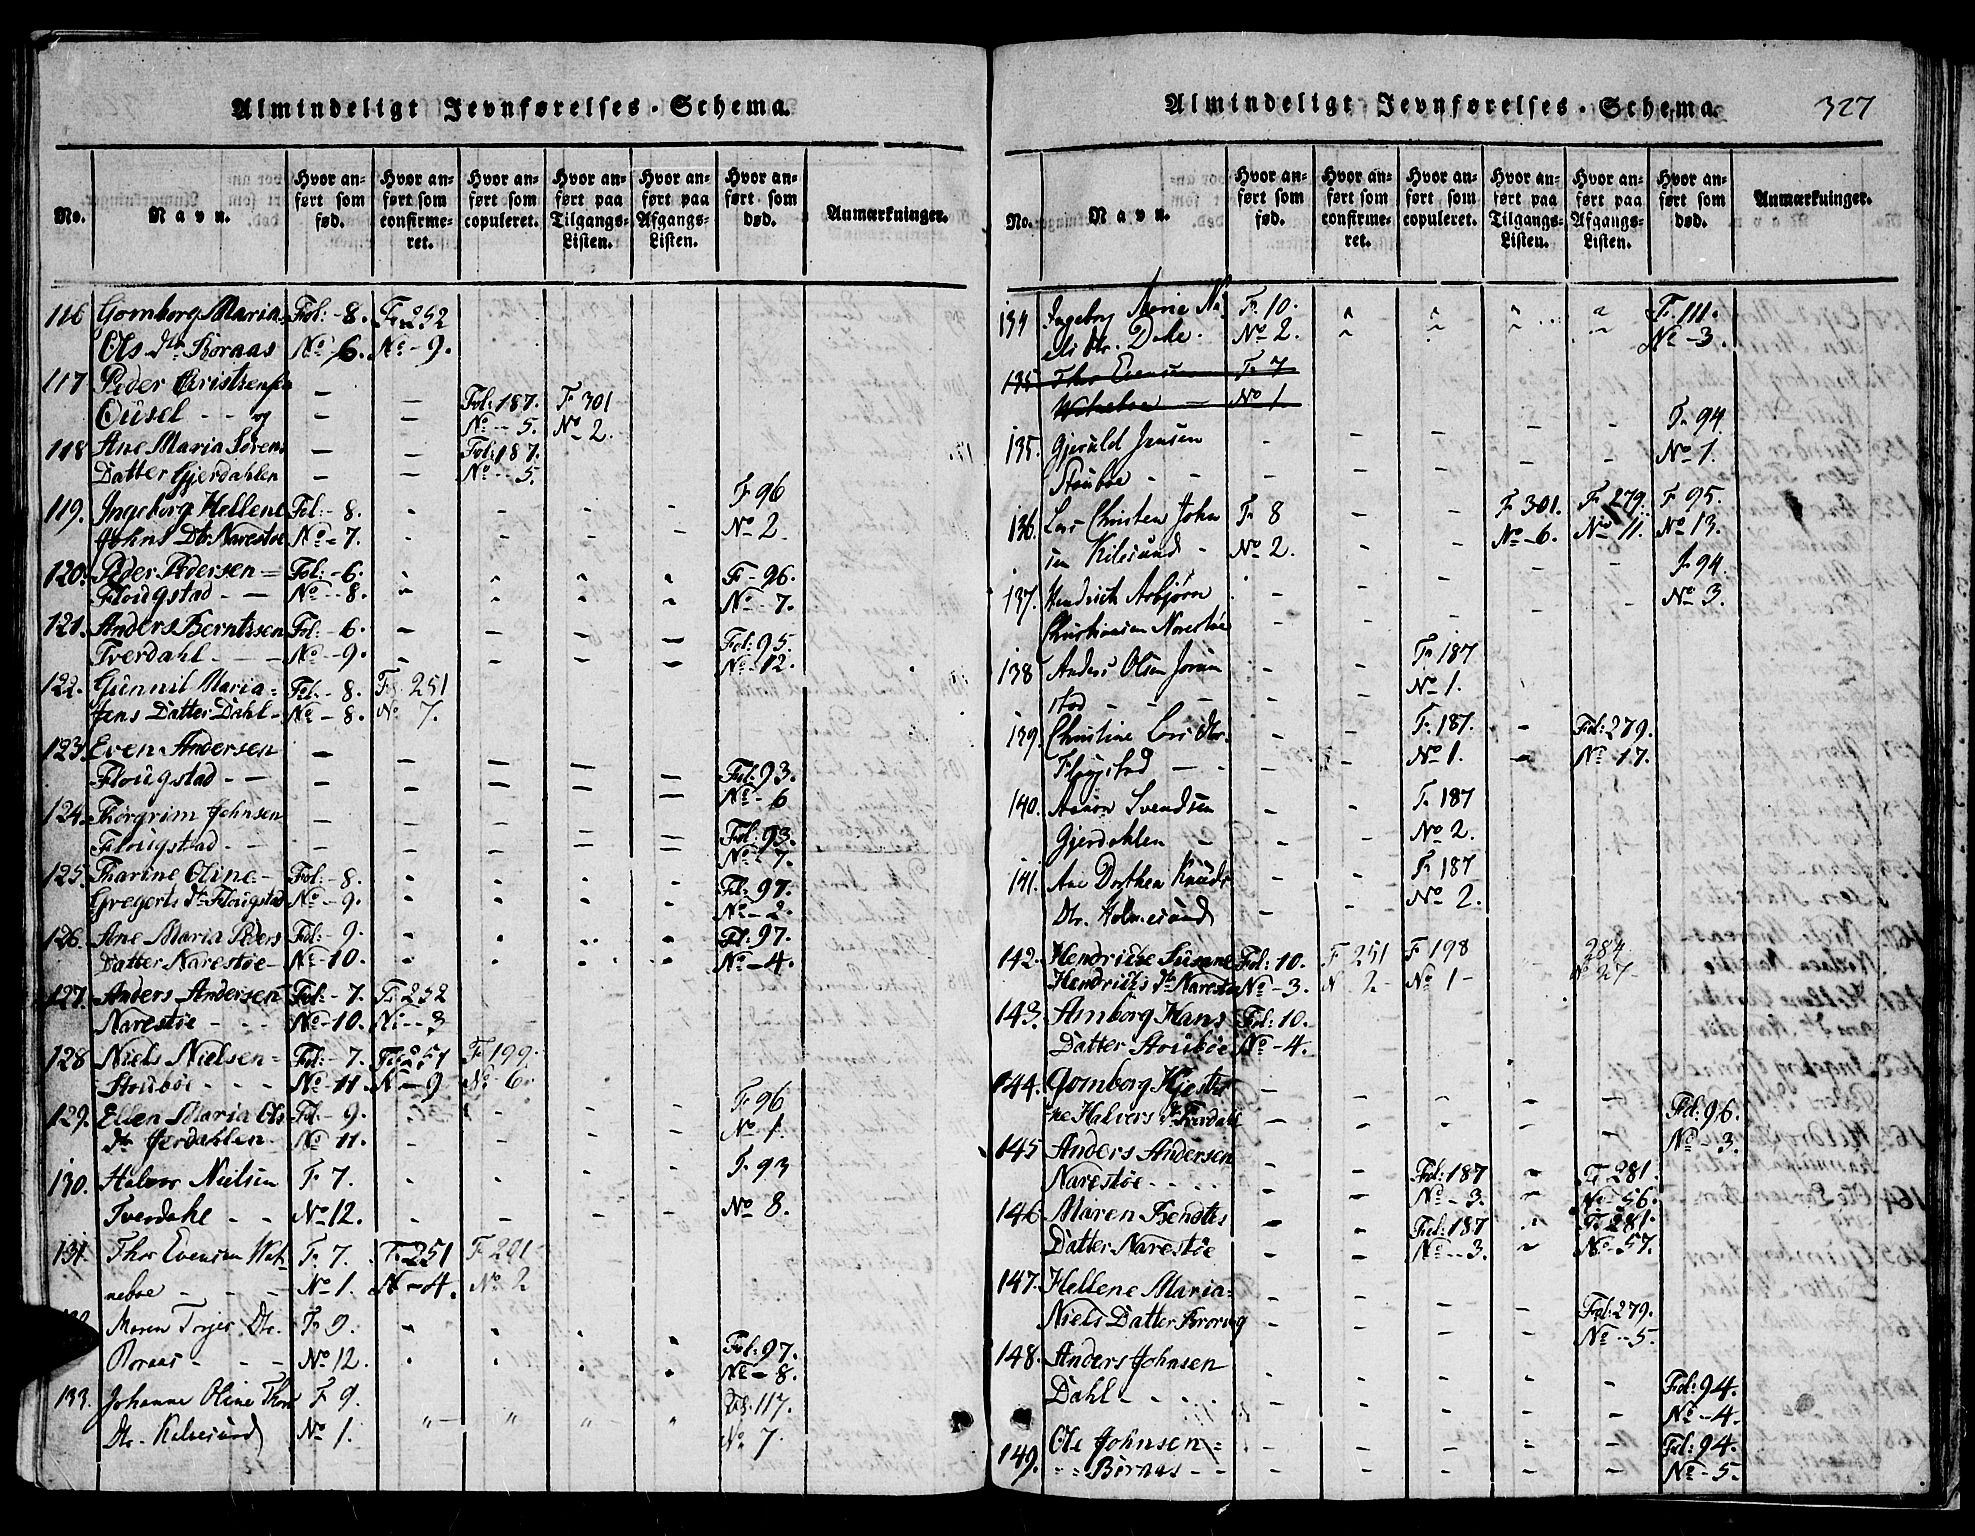 Almindeligt Jevnførelses-Schema.
No.
Navn.
Hvor anført som fød.
Hvor anført som confirmeret.
Hvor anført som copuleret.
Hvor anført paa Tilgangs-Listen.
Hvor anført paa Afgangs-Listen.
Hvor anført som død.
Anmærkninger.
116 Gomborg Maria Fol:-8. F. 252
Ols Dtr Boraas No 6. No-9.
117 Peder Christensen - - Fol:187. F 301
Ousel - - og - - No--5. No 2.
118 Ane Maria Sørens - - Fol:187.
Datter Gjerdahlen - - No--5.
119. Ingeborg Hellene Fol:-8. F 96
Johns Dtr Narestøe No-7. No-2.
120. Peder Pedersen = Fol:-6. F-96.
Flougstad - - No--8. No--7.
121. Anders Berntsen Fol:-6. Fol:95.
Tverdahl - - No--9. No-12.
122. Gunnil Maria = Fol:-8. F. 251
Jens Datter Dahl - No-8. No 7.
123. Even Andersen Fol:93.
Flougstad - - No-6
124. Thorgrim Johnsen Fol:93.
Flougstad - - No-7.
125. Tharine Oline - Fol:-8. Fol:97.
Gregerts Dtr Flougstad No-9. No-2.
126. Ane Maria Peders Fol:-9. Fol:97.
Datter Narestøe - No-10. No-4.
127. Anders Andersen Fol:-7. F. 252
Narestøe - - - No-10. No--3
128 Niels Nielsen = Fol:-7. Fol 251 F 199.
Stoubøe - - - No-11. No-9 No-6.
129. Ellen Maria Ols Fol-9. F 96
Dtr Jerdahlen - No-11. No 1.
130. Halvor Nielsen F. 7. F. 93
Tverdahl - - No 12. No 8.
131. Thor Evensen Wat F. 7. F. 251 F 201
neboe - - - No 1. N-4. No 2
Maren Torjes Dtr. F. 9. Fol:97.
Boraas - - - No 12. No-8.
133. Johanne Oline Thor F 9. Fol. 117.
Dtr. Kilesund No 1. No 7.
Almindeligt Jevnførelses-Schema.
327
No.
Navn.
Hvor anført som fød.
Hvor anført som confirmeret.
Hvor anført som copuleret.
Hvor anført paa Tilgangs-Listen.
Hvor anført paa Afgangs-Listen.
Hvor anført som død.
Anmærkninger.
134 Ingeborg Marie Ni F. 10. F. 111.
els Dtr. Dale. No 2. No-3.
135 Thor Evensen F. 7
Watneboe - No 1
135. Gjeruld Jensen F. 94
Stouboe - - No 1.
136. Lars Christen John F. 8 F. 301. F. 279. F. 95.
sen Kilesund - No 2. No-6. No 11. No 13.
137. Hendrich Asbjørn F. 94.
Christiansen Narestøe No 3.
138 Anders Olsen Joran F. 187
stad - - - No 1.
139. Christine Lars Dtr. F. 187. Fol:279.
Flougstad - - No 1. No 17.
140. Aanon Svendsen F. 187
Gjerdahlen - No 2.
141. Ane Dorthea Knuds F. 187
Dtr. Holmesund No 2.
142. Hendrikke Susane Fol:10. F 251 F 198 284
Hendriks Dtr Narestøe No-3. N 2- No 1- No 27
143. Amborg Hans Fol:10.
Datter Stoubøe No-4.
144. Gomborg Kjesti Fol:96.
ne Halvers Dtr Tverdahl No-3.
145 Anders Andersen Fol:187 F. 281.
Narestøe - - - - No-3. No-56.
146. Maren Bendts Fol:187 F. 281.
Datter Narestøe No--3. No-57.
147. Hellene Maria = Fol:279.
Niels Datter Brorvig No--5.
148. Anders Johnsen Fol:94.
Dahl - - - - No-4.
149. Ole Johnsen = Fol:94.
- = Boraas - - No-5.